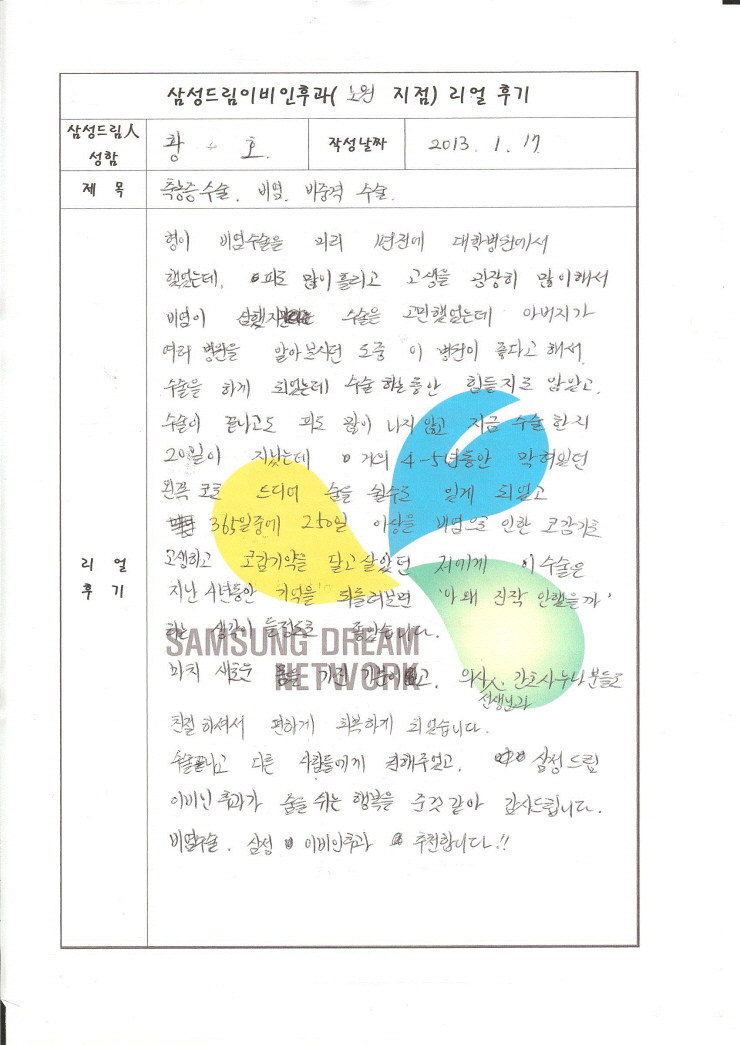 삼성드림이비인후과( 노원 지점) 리얼 후기
삼성드림人 성함
황 호.
작성날짜
2013. 1. 17
제 목
축농증수술. 비염. 비중격 수술.
리 얼 후 기
형이 비염수술을 미리 1년전에 대학병원에서
했었는데, 피도 많이흘리고 고생을 굉장히 많이해서
비염이 수술은 고민했었는데 아버지가
여러 병원을 알아보시던 도중 이 병원이 좋다고 해서
수술을 하게 되었는데 수술 하는동안 힘들지도 않았고,
수술이 끝나고도 피도 많이 나지 않고 지금 수술한지
20일이 지났는데 거의 4-5년동안 막혀있던
왼쪽 코로 드디어 숨을 쉴수도 있게 되었고
365일중에 250일 이상을 비염으로 인한 코감기로
고생하고 코감기약을 달고살았던 저에게 이수술은
지난 4년동안 기억을 되돌려보면 '아왜 진작 안했을까'
라는 생각이 들정도로 좋았습니다.
SAMSUNG DREAM
NETWORK
마치 새로운 몸을 가진 의사선생님과, 간호사누나분들도
친절하셔서 편하게 회복하게 되었습니다.
수술끝나고 다른 사람들에게 권해주었고, 삼성드림
이비인후과가 숨을 쉬는 행복을 준것같아 감사드립니다.
비염수술. 삼성 이비인후과 추천합니다.!!